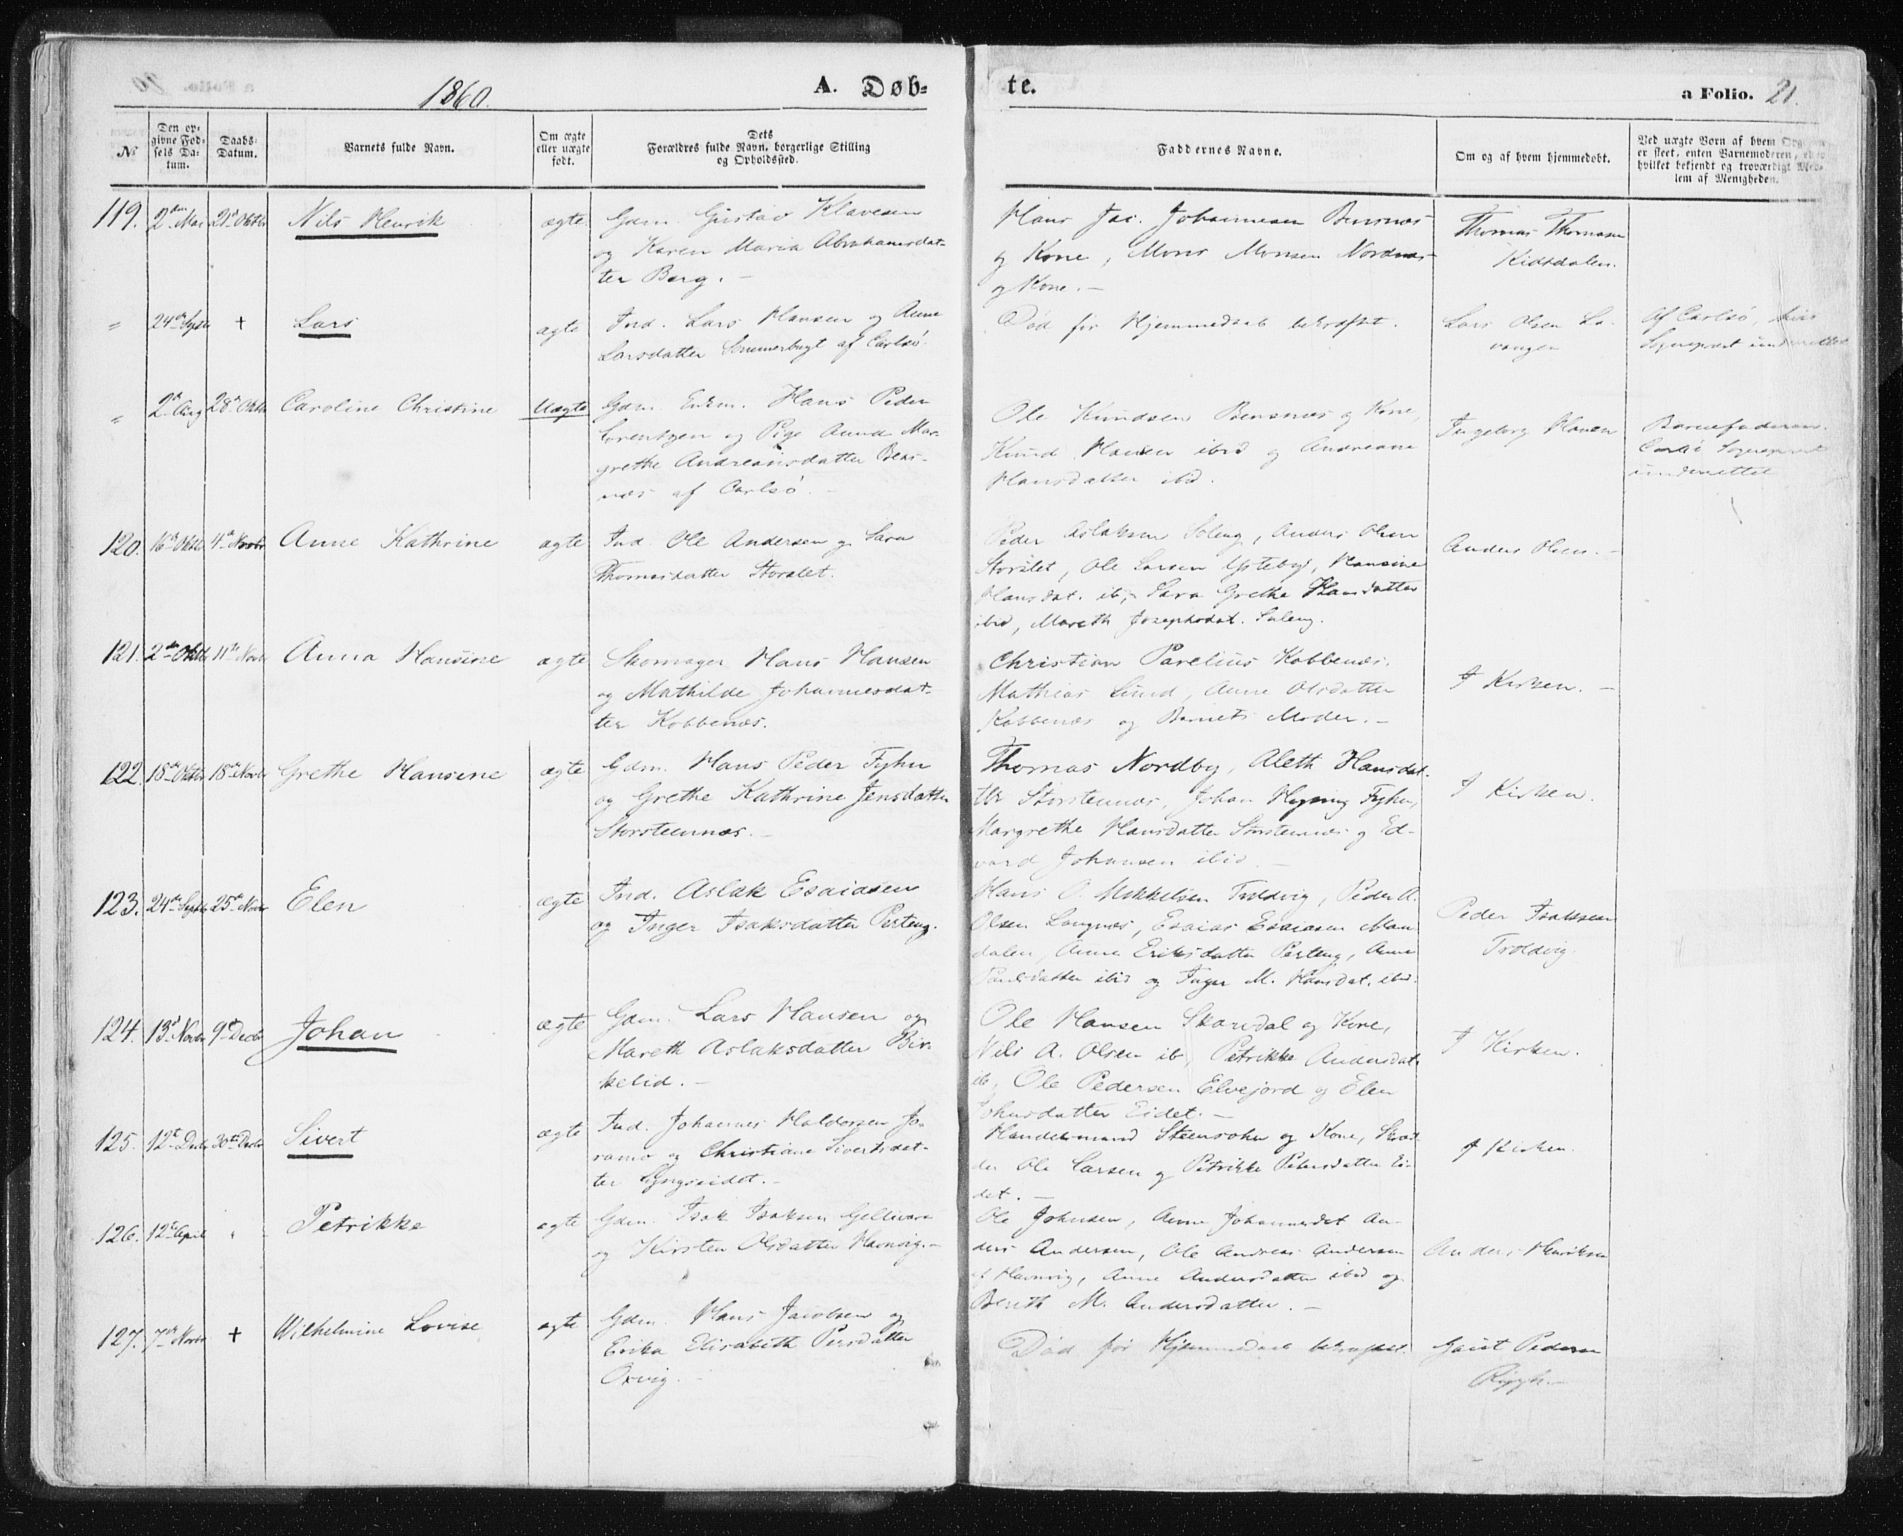 1860.
A. Døb-
te.
a Folio. 21.
№
Den op-
givne Fød-
sels Da-
tum.
Daabs-
Datum.
Barnets fulde Navn.
Om ægte
eller uægte
født.
Dets
Forældres fulde Navn, borgerlige Stilling
og Opholdssted.
Faddernes Navne.
Om og af hvem hjemmedøbt.
Ved uægte Børn af hvem Opgaven
er skeet, enten Barnemoderen, eller
hvilket bekjendt og troværdigt Med-
lem af Menigheden.
119. 2den Mai 21d Oktbr Nils Henrik ægte Gdm. Gustav Klavesen
og Karen Maria Abrahamsdat-
ter Berg. -
Hans Jac. Johannesen Bensnæs
og Kone, Mons Monsen Nordnæs
og Kone. -
Thomas Thomasen
Kidsdalen.
" 24d Septbr + Lars ægte Ind. Lars Hansen og Anne
Larsdatter Sommerbugt af Carlsö.
Död för Hjemmedaab bekræftet.
Lars Olsen La-
vangen
Af Carlsö,
Sogneprest underrettet
" 2d Aug 28d Oktbr Caroline Christine Uægte Gdm. Enkm. Hans Peder
Lorentzen og Pige Anna Mar-
grethe Andreasdatter Bens-
næs af Carlsö. -
Ole Knudsen Bensnæs og Kone,
Knud Hansen ibid og Andreana
Hansdatter ibd.
Ingeborg Hansen
Barnefaderen.
Carlsö Sogneprest
underrettet
120. 16d Oktbr 4d Novbr Anne Kathrine ægte Ind. Ole Andersen og Sara
Thomasdatter Storslet.
Peder Aslaksen Soleng, Anders Olsen
Storslet, Ole Larsen Ysteby, Hansine
Hansdat. ib, Sara Grethe Hansdatter
ibid, Mareth Josephsdat. Soleng.
Anders Olsen. -
121. 2den Oktbr 11te Novbr Anna Hansine ægte Skomager Hans Hansen
og Mathilde Johannesdat-
ter Kobbenæs.
Christian Parelius Kobbenæs,
Mathias Lund, Anne Olsdatter
Kobbenæs og Barnets Moder. -
I Kirken. -
122. 18de Oktbr 18de Novbr Grethe Hansine ægte Gdm. Hans Peder Fyhn
og Grethe Kathrine Jensdatter
Storsteennæs. -
Thomas Nordby, Aleth Hansdat-
ter Storstennæs, Johan Hysing Fyhn,
Margrethe Hansdatter Storstennæs og Ed-
vard Johansen ibid. -
I Kirken.
123. 24de Septbr 25de Novbr Elen ægte Ind. Aslak Esaiasen
og Inger Isaksdatter Perteng.
Hans O. Mikkelsen Troldvig, Peder A.
Olsen Langnæs, Esaias Esaiasen Man-
dalen, Anna Eriksdatter Perteng, Anne
Paulsdatter ibid og Inger M. Hansdat. ibid.
Peder Isaksen
Troldvig.
124. 13d Novbr 9d Decbr Johan ægte Gdm. Lars Hansen og
Mareth Aslaksdatter Bir-
kelid. -
Ole Hansen Skardal og Kone,
Nils A. Olsen ib, Petrikke Andersdat.
ib, Ole Pedersen Elvejord og Elen
Johnsdatter Eidet. -
I Kirken.
125. 12t Decbr 30te Decbr Sivert ægte Ind. Johannes Haldorsen Jo-
ramo og Christiane Sivertsdat-
ter Lyngseidet. -
Handelsmand Steensohn og Kone, Skræd-
der Ole Larsen og Petrikke Petersdatter Ei-
det. -
I Kirken.
126. 12te April " Petrikke ægte Gdm. Isak Isaksen Gellivara
og Kirsten Olsdatter Havnvig. -
Ole Johnsen, Anne Johannesdat. An-
ders Andersen, Ole Andreas Andersen
Havnvig, Anne Andersdatter ibid og
Berith M. Andersdatter. -
Anders Henriksen
127. 7de Novbr + Wilhelmine Lovise ægte Gdm. Hans Jacobsen og
Erika Elisabeth Persdatter
Oxvig. -
Död för Hjemmedaab bekræftet.
Gairt Pedersen